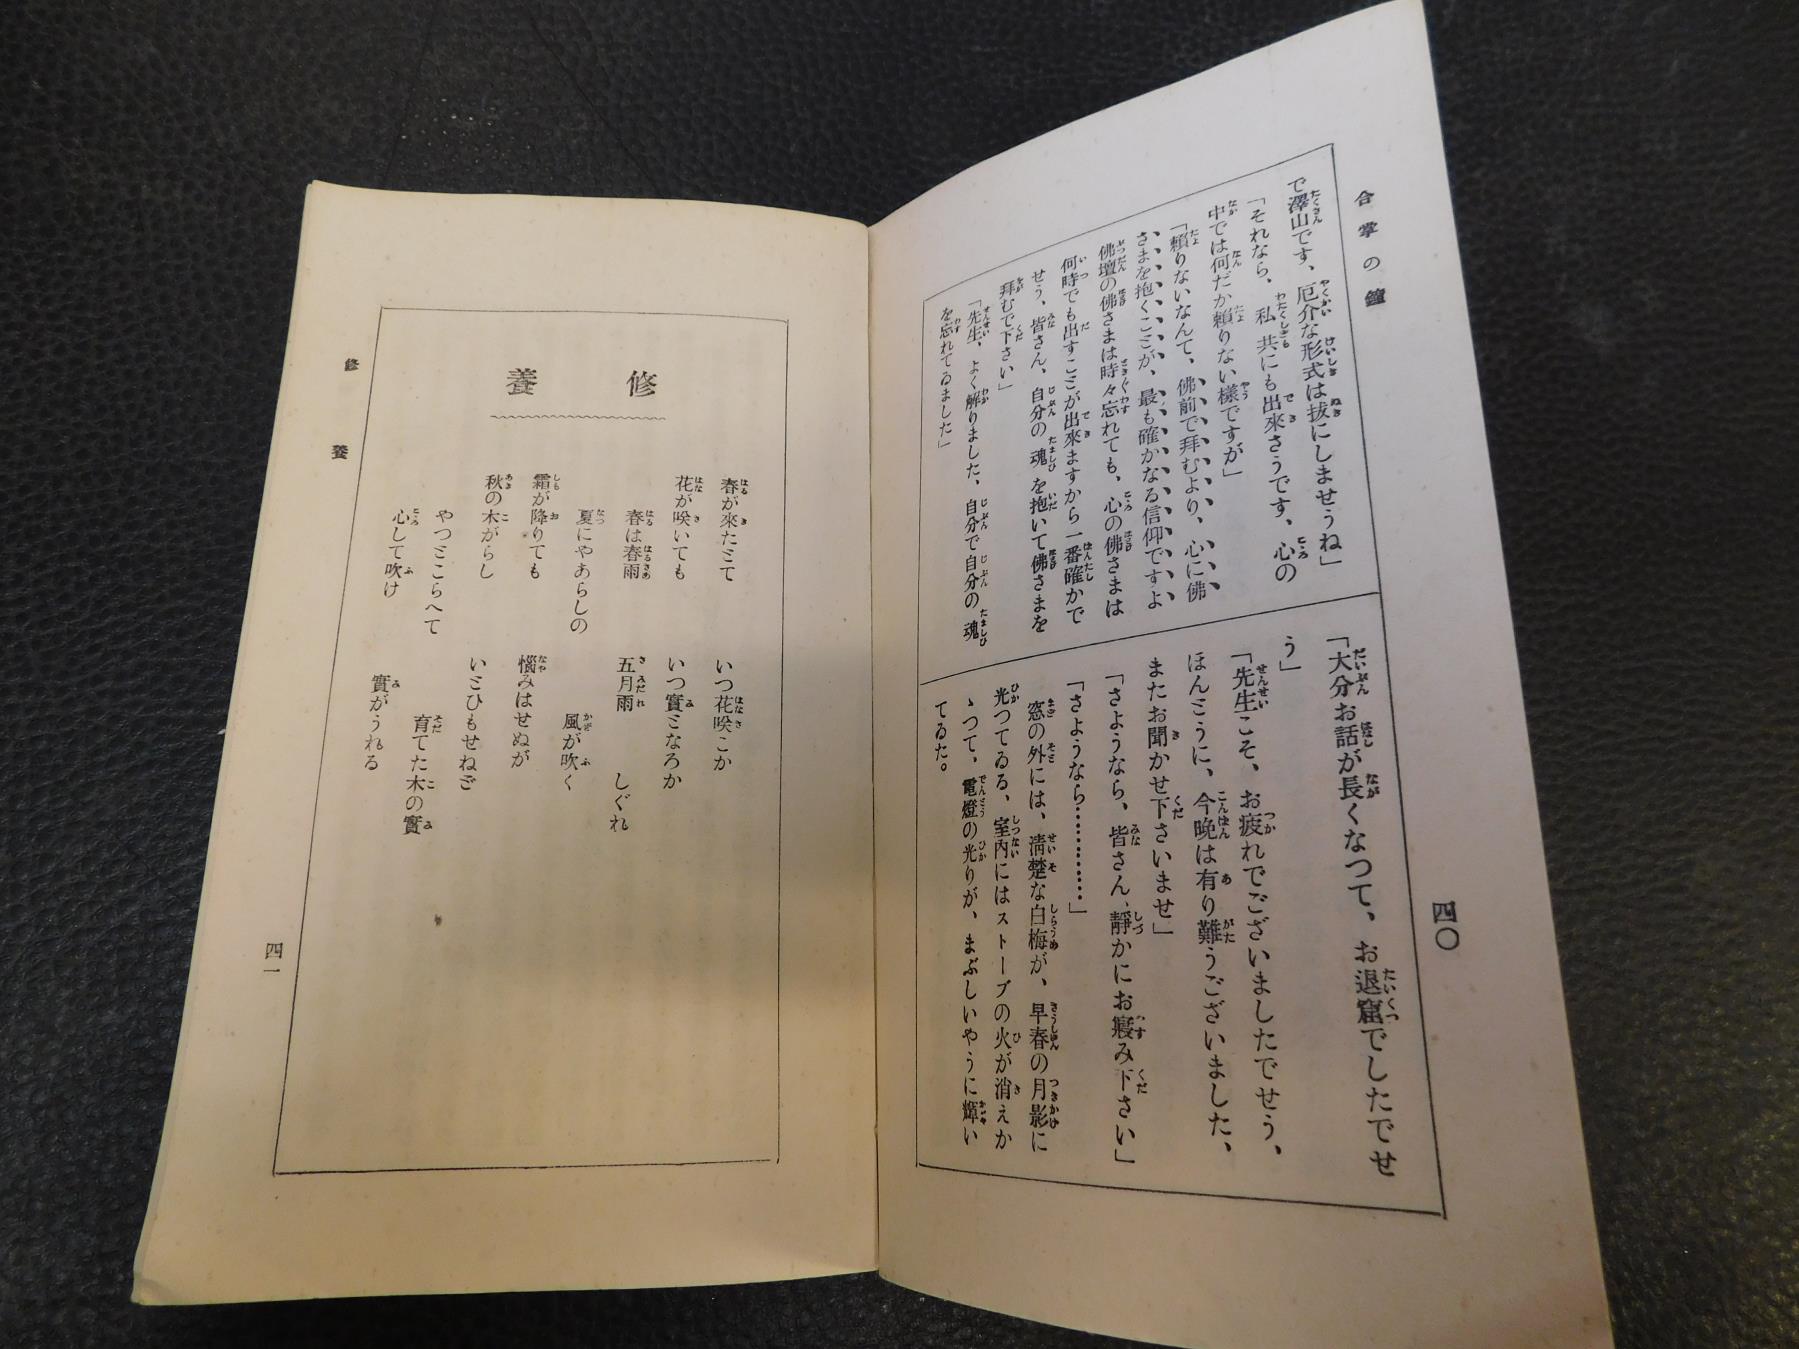 合掌の鐘
四〇
で澤山です、厄介な形式は拔にしませうね」
「それなら、私共にも出來さうです、心の
中では何だか賴りない樣ですが」
「賴りないなんて、佛前で拜むより、心に佛
さまを抱くことが、最も確かなる信仰ですよ
佛壇の佛さまは時々忘れても、心の佛さまは
何時でも出すことが出來ますから一番確かで
せう、皆さん、自分の魂を抱いて佛さまを
拜むで下さい」
「先生、よく解りました、自分で自分の魂
を忘れてゐました」
「大分お話が長くなつて、お退窟でしたでせ
う」
「先生こそ、お疲れでございましたでせう、
ほんとうに、今晩は有り難うございました、
またお聞かせ下さいませ」
「さようなら、皆さん、靜かにお寢み下さい」
「さようなら…………」
窓の外には、淸楚な白梅が、早春の月影に
光つてゐる、室内にはストーブの火が消えか
ゝつて、電燈の光りが、まぶしいやうに輝い
てゐた。
修養
春が來たとて　いつ花咲こか
花が咲いても　いつ實となろか
春は春雨　五月雨　しぐれ
夏にやあらしの　風が吹く
霜が降りても　惱みはせぬが
秋の木がらし　いとひもせねど
やつとこらへて　育てた木の實
心して吹け　實がうれる
修養
四一